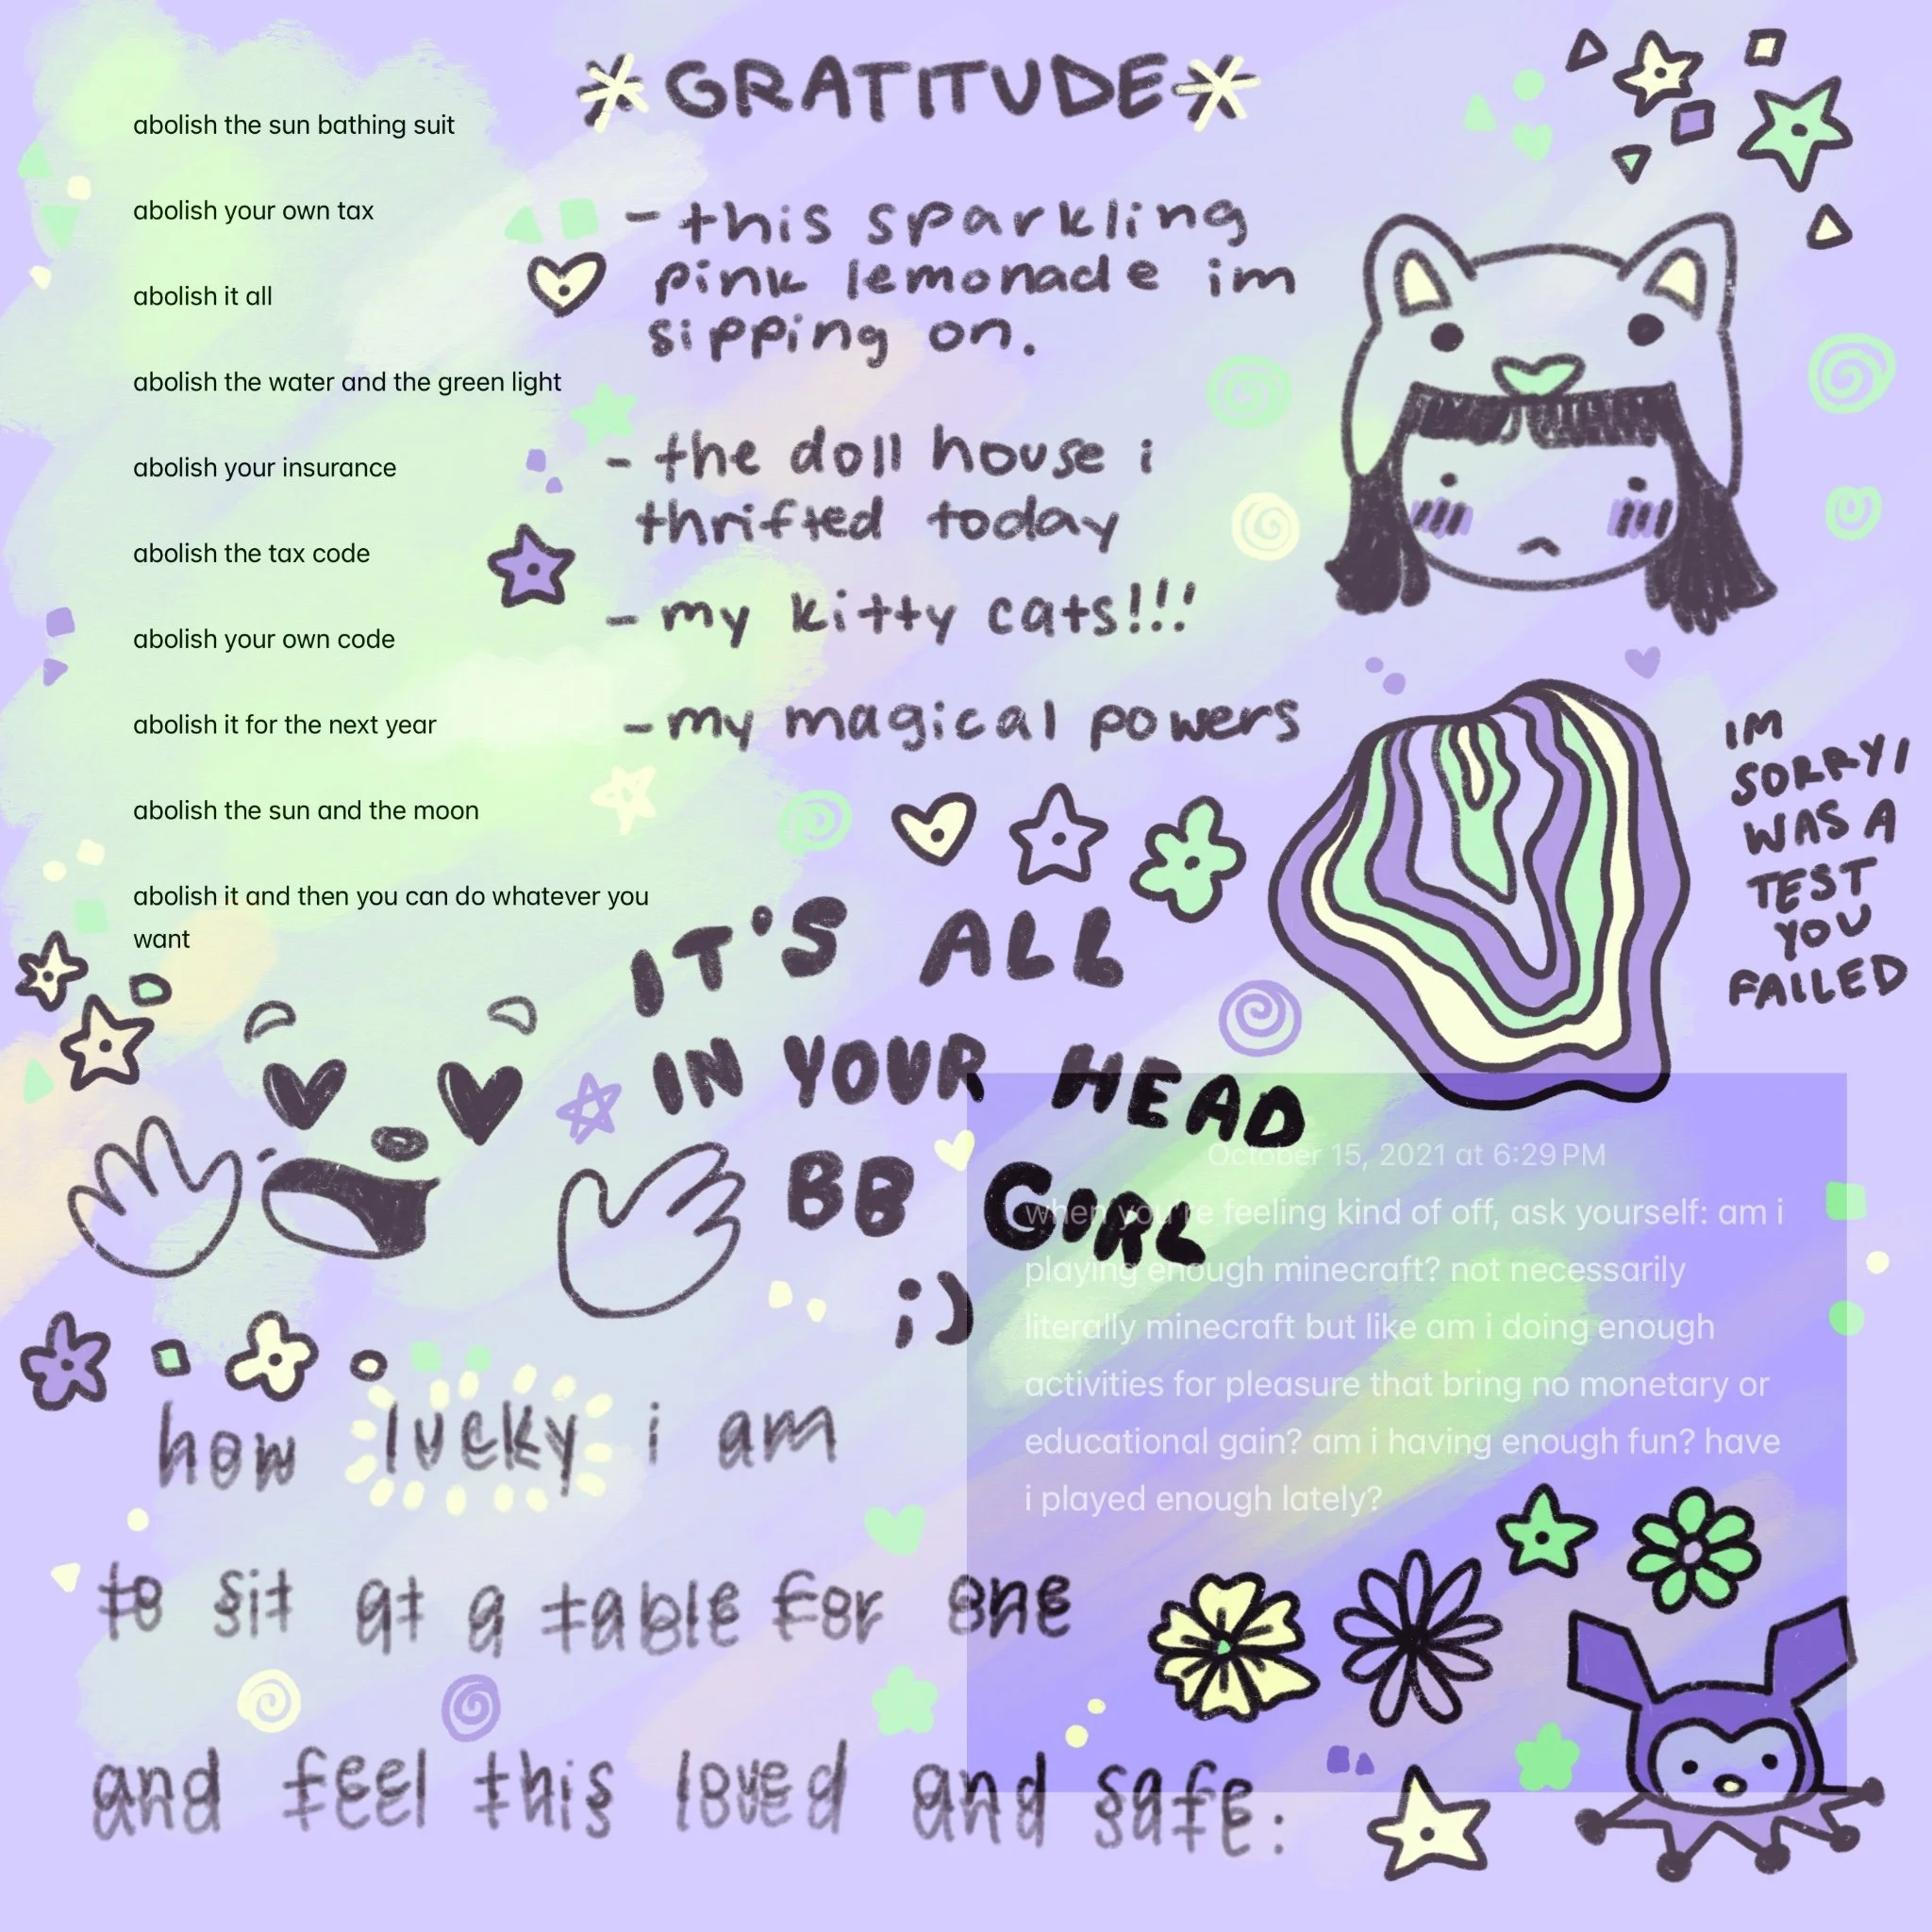 abolish the sun bathing suit
abolish your own tax
abolish it all
abolish the water and the green light
abolish your insurance
abolish the tax code
abolish your own code
abolish it for the next year
abolish the sun and the moon
abolish it and then you can do whatever you
want
*GRATITUDE*
- this sparkling
pink lemonade im
sipping on.
- the doll house i
thrifted today
- my kitty cats!!!
- my magical powers
IM
SORRY I
WAS A
TEST
YOU
FAILED
IT'S ALL
IN YOUR HEAD
BB GIRL
;)
October 15, 2021 at 6:29 PM
when you're feeling kind of off, ask yourself: am i
playing enough minecraft? not necessarily
literally minecraft but like am i doing enough
activities for pleasure that bring no monetary or
educational gain? am i having enough fun? have
i played enough lately?
how lucky i am
to sit at a table for one
and feel this loved and safe.